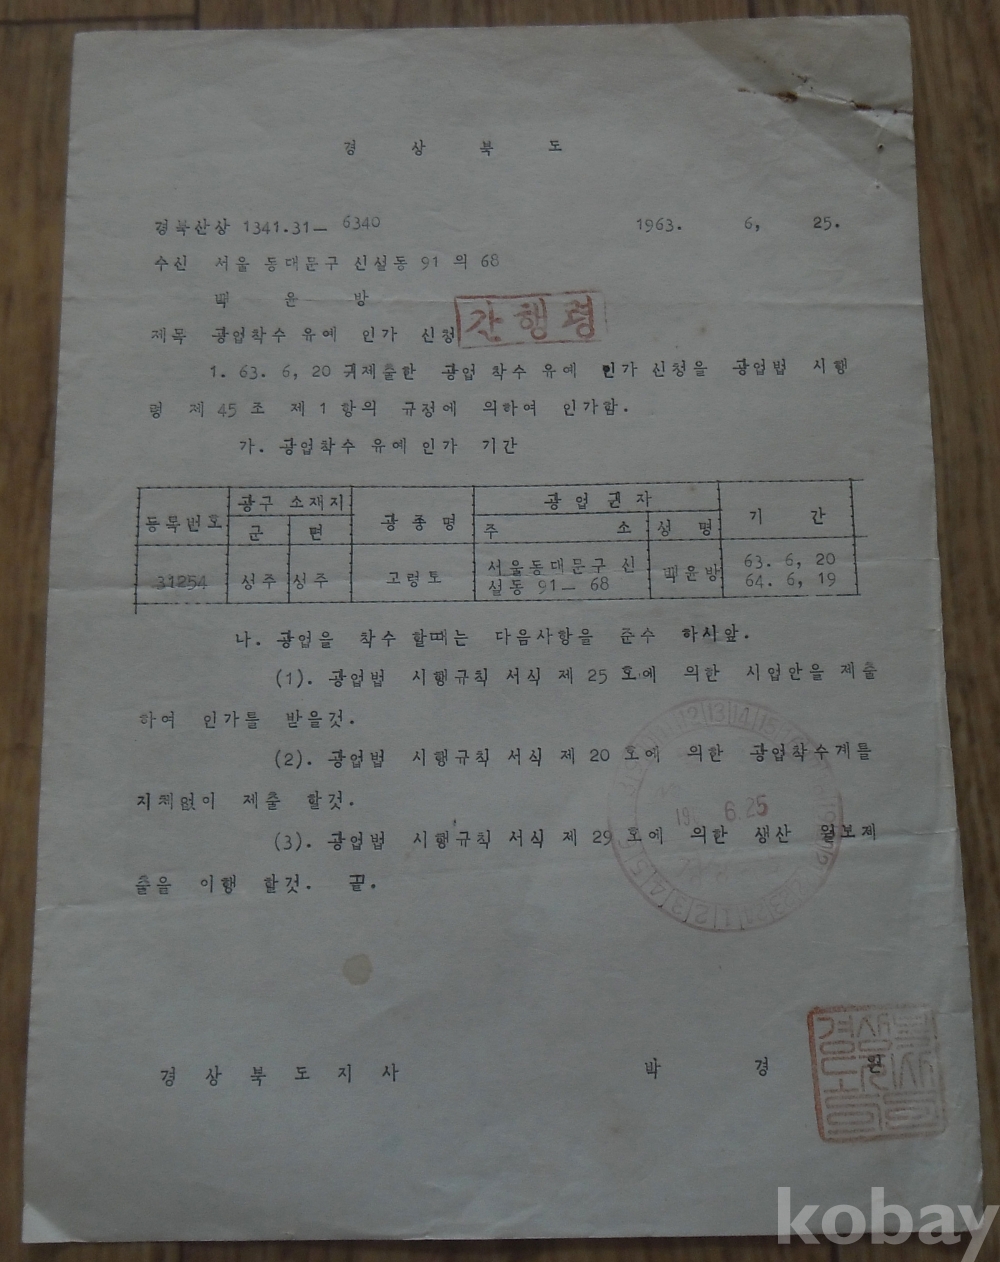 경 상 북 도
경북산상 1341.31— 6340 1963. 6, 25.
수신 서울 동대문구 신설동 91 의 68
백 윤 방
제목 광업착수 유예 인가 신청
간행령
1. 63. 6, 20 귀제출한 광업 착수 유예 인가 신청을 광업법 시행
령 제 45 조 제 1 항의 규정에 의하여 인가함.
가. 광업착수 유예 인가 기간
등록번호 광구 소재지 광종명 광업권자 기 간
군 면 주 소 성 명
31254 성주 성주 고령토 서울동대문구 신 백윤방 63. 6, 20
설동 91— 68 64. 6, 19
나. 광업을 착수 할때는 다음사항을 준수 하시앞.
(1). 광업법 시행규칙 서식 제 25 호에 의한 시업안을 제출
하여 인가를 받을것.
(2). 광업법 시행규칙 서식 제 20 호에 의한 광업착수계를
지체없이 제출 할것.
(3). 광업법 시행규칙 서식 제 29 호에 의한 생산 월보제
출을 이행 할것. 끝.
6.25
경 상 북 도 지 사 박 경 원
경상북
도지사
kobay